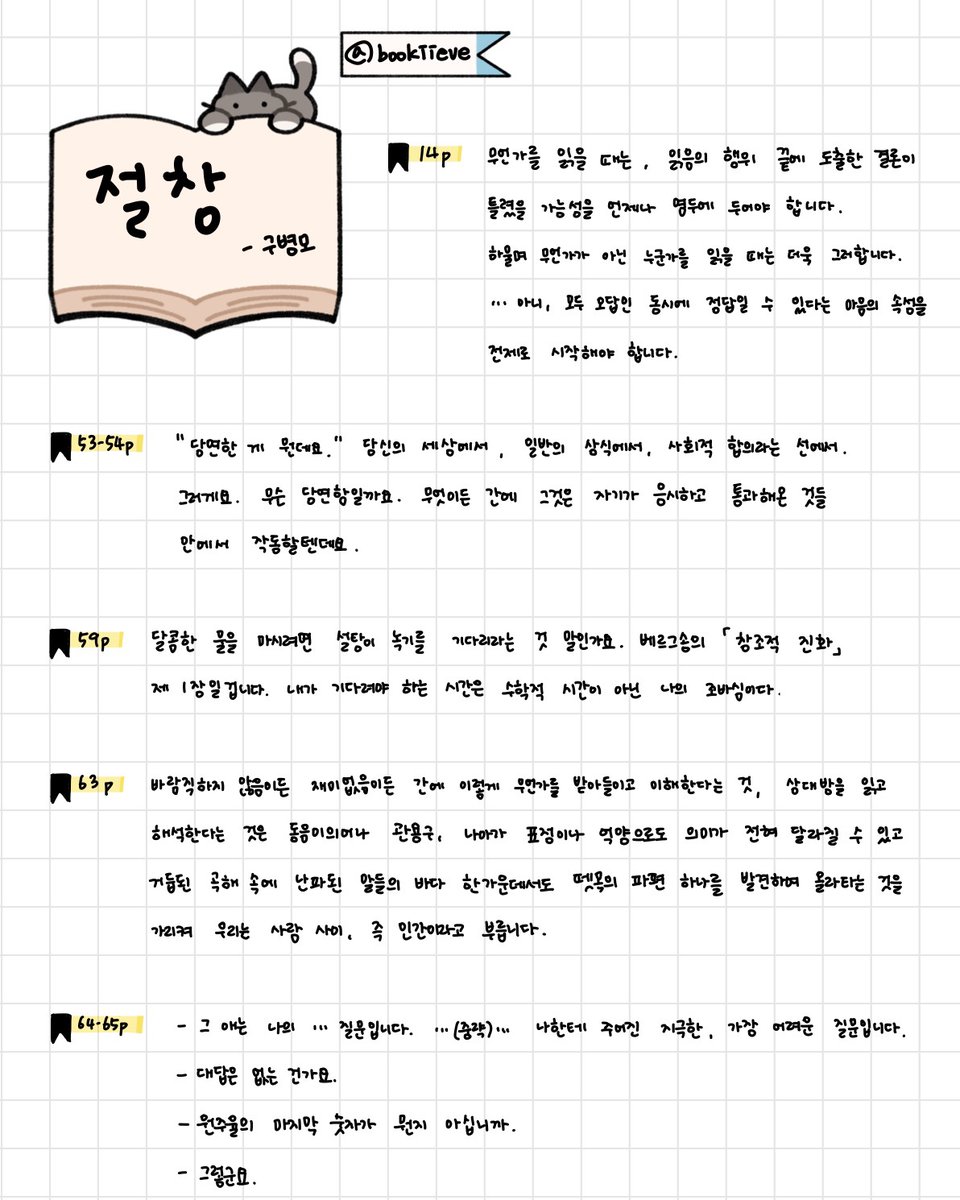 @bookiieve
절창
- 구병모
14p
무언가를 읽을 때는, 읽음의 행위 끝에 도출한 결론이
틀렸을 가능성을 언제나 염두에 두어야 합니다.
하물며 무언가가 아닌 누군가를 읽을 때는 더욱 그러합니다.
… 아니, 모두 오답인 동시에 정답일 수 있다는 마음의 속성을
전제로 시작해야 합니다.
53-54p
"당연한 게 뭔데요." 당신의 세상에서, 일반의 상식에서, 사회적 합의라는 선에서.
그러게요. 무슨 당연함일까요. 무엇이든 간에 그것은 자기가 응시하고 통과해온 것들
안에서 작동할텐데요.
59p
달콤한 물을 마시려면 설탕이 녹기를 기다리라는 것 말인가요. 베르그송의 「창조적 진화」
제 1장일겁니다. 내가 기다려야 하는 시간은 수학적 시간이 아닌 나의 조바심이다.
63p
바람직하지 않음이든 재미없음이든 간에 이렇게 무언가를 받아들이고 이해한다는 것, 상대방을 읽고
해석한다는 것은 동음이의어나 관용구, 나아가 표정이나 억양으로도 의미가 전혀 달라질 수 있고
거듭된 곡해 속에 난파된 말들의 바다 한가운데서도 뗏목의 파편 하나를 발견하여 올라타는 것을
가리켜 우리는 사람 사이, 즉 인간이라고 부릅니다.
64-65p
- 그 애는 나의 … 질문입니다. …(중략)… 나한테 주어진 지극한, 가장 어려운 질문입니다.
- 대답은 없는 건가요.
- 원주율의 마지막 숫자가 뭔지 아십니까.
- 그렇군요.